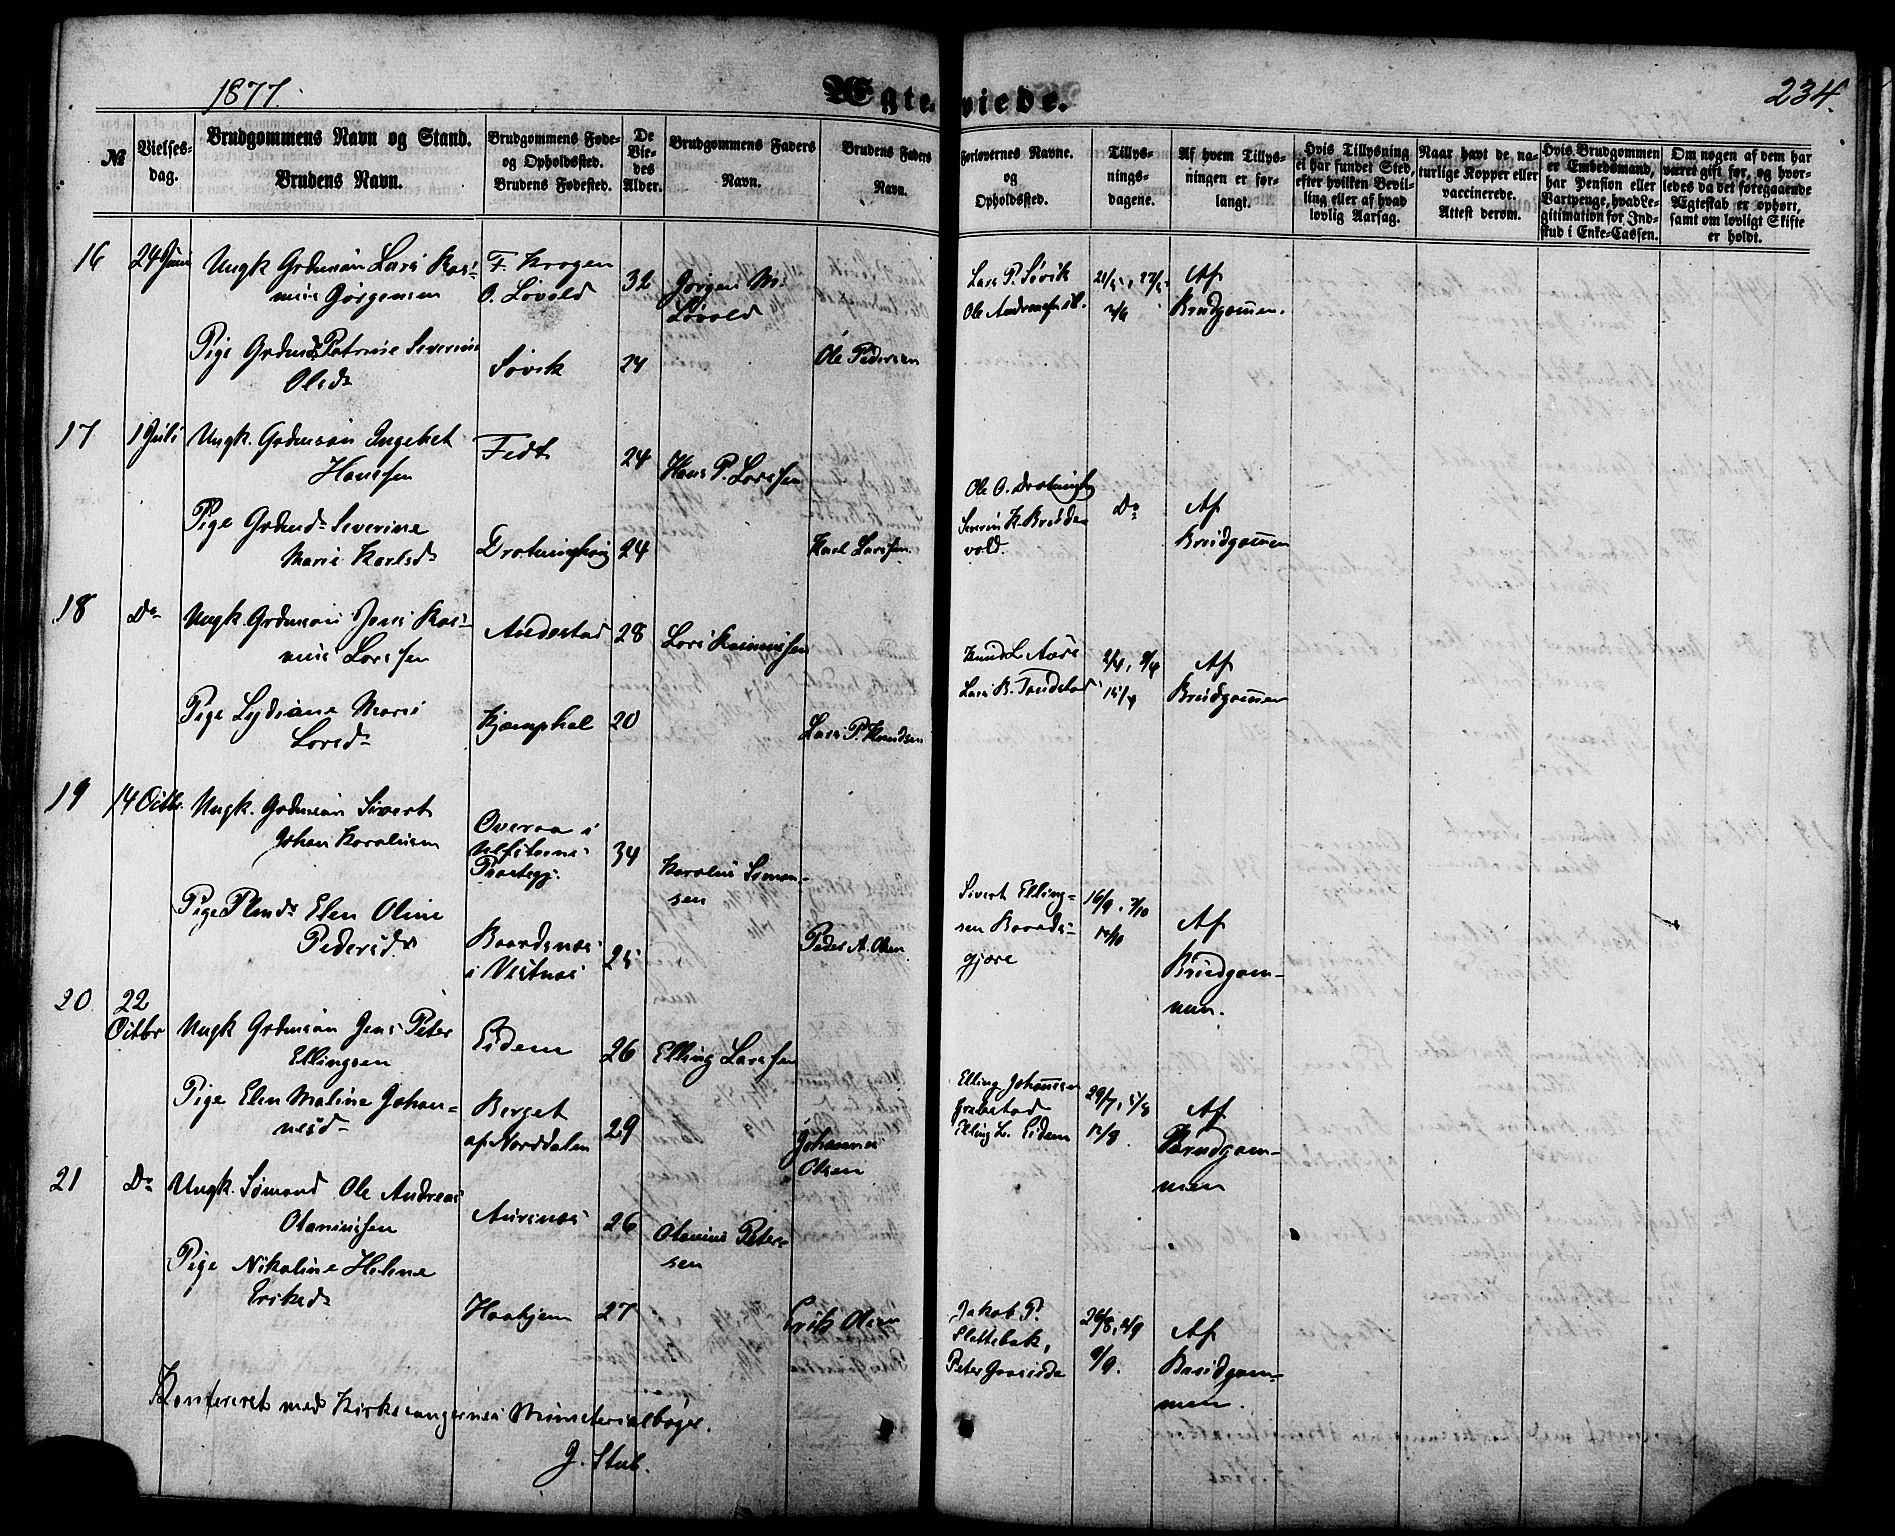 1877.
Ægteviede.
234.
№
Vielses-
dag.
Brudgommens Navn og Stand.
Brudens Navn.
Brudgommens Føde-
og Opholdssted.
Brudens Fødested.
De
Vie-
des
Alder.
Brudgommens Faders
Navn.
Brudens Faders
Navn.
Forlovernes Navne.
og
Opholdssted.
Tillys-
nings-
dagene.
Af hvem Tillys-
ningen er for-
langt.
Hvis Tillysning
ei har fundet Sted,
efter hvilken Bevil-
ling eller af hvad
lovlig Aarsag.
Naar havt de na-
turlige Kopper eller
vaccinerede.
Attest derom.
Hvis Brudgommen
er Embedsmand,
har Pension eller
Vartpenge, hvad Le-
gitimation for Ind-
skud i Enke-Cassen.
Om nogen af dem har
været gift før, og hvor-
ledes da det foregaaende
Ægteskab er ophørt,
samt om lovligt Skifte
er holdt.
16
24 Juni
Ungk Grdmsøn Lars Ras-
mus Jørgensen
F. Krogen
O. Løvold
32
Jørgen M.
Løvold
Lars P. Søvik
21/5, 27/5
3/6
Af
Brudgommen.
Pige Grdmsd Petrine Severine
Olsdr
Søvik
24
Ole Pedersen
17
1 Juli
Ungk. Grdmsøn Ingebrt
Hanssen
Fedt
24
Hans P. Larssen
Ole O. Drotninghg
Severin K. Bredde-
vold.
Do
Af
Brudgommen
Pige Grdmdr Severine
Marie Karlsdr
Drotninghaug
24
Karl Larssen.
18
Do
Ungk. Grdmsøn Jens Ras-
mus Larssen
Andestad
28
Lars Rasmussen
Knud L. Aure
Lars B. Tandstad
2/4, 9/4
15/4
Af
Brudgommen
Pige Lydiane Marie
Larsdr
Kjæmphol
20
Lars P. Knudsen
19
14 Octbr.
Ungk. Grdmsøn Sivert
Johan Karolusen
Overaa i
Ulfstens
Præstegj.
34
Karolus Simon-
sen
Sivert Elling-
sen Baards-
gjære
16/9, 7/10
14/10
Af
Brudgom-
men.
Pige Plmdr Elen Oline
Pedersdr.
Baardsnes
i Vestnes
25
Peder A. Olsen
20
22
Octbr
Ungk Grdmsøn Jens Peter
Ellingsen
Eidem
26
Elling Larssen
Elling Johansen
Grebstad
Elling L. Eidem
29/7, 5/8
12/8
Af
Brudgom-
men
Pige Elen Maline Johan-
nesdr
Berget
af Norddalen
29
Johannes
Olsen
21
Do
Ungk. Sømand Ole Andreas
Olaniussen
Aursnes
26
Olanius Peter-
sen
Pige Nikoline Helene
Eriksdr
Haahjem
27
Erik Olsen
Jakob P.
Slettebak,
Peter Gaaseide
26/8, 2/9
9/9.
Af
Brudgom-
men.
Konfereret med Kirkesangernes Ministerialbøger.
J. Stub.